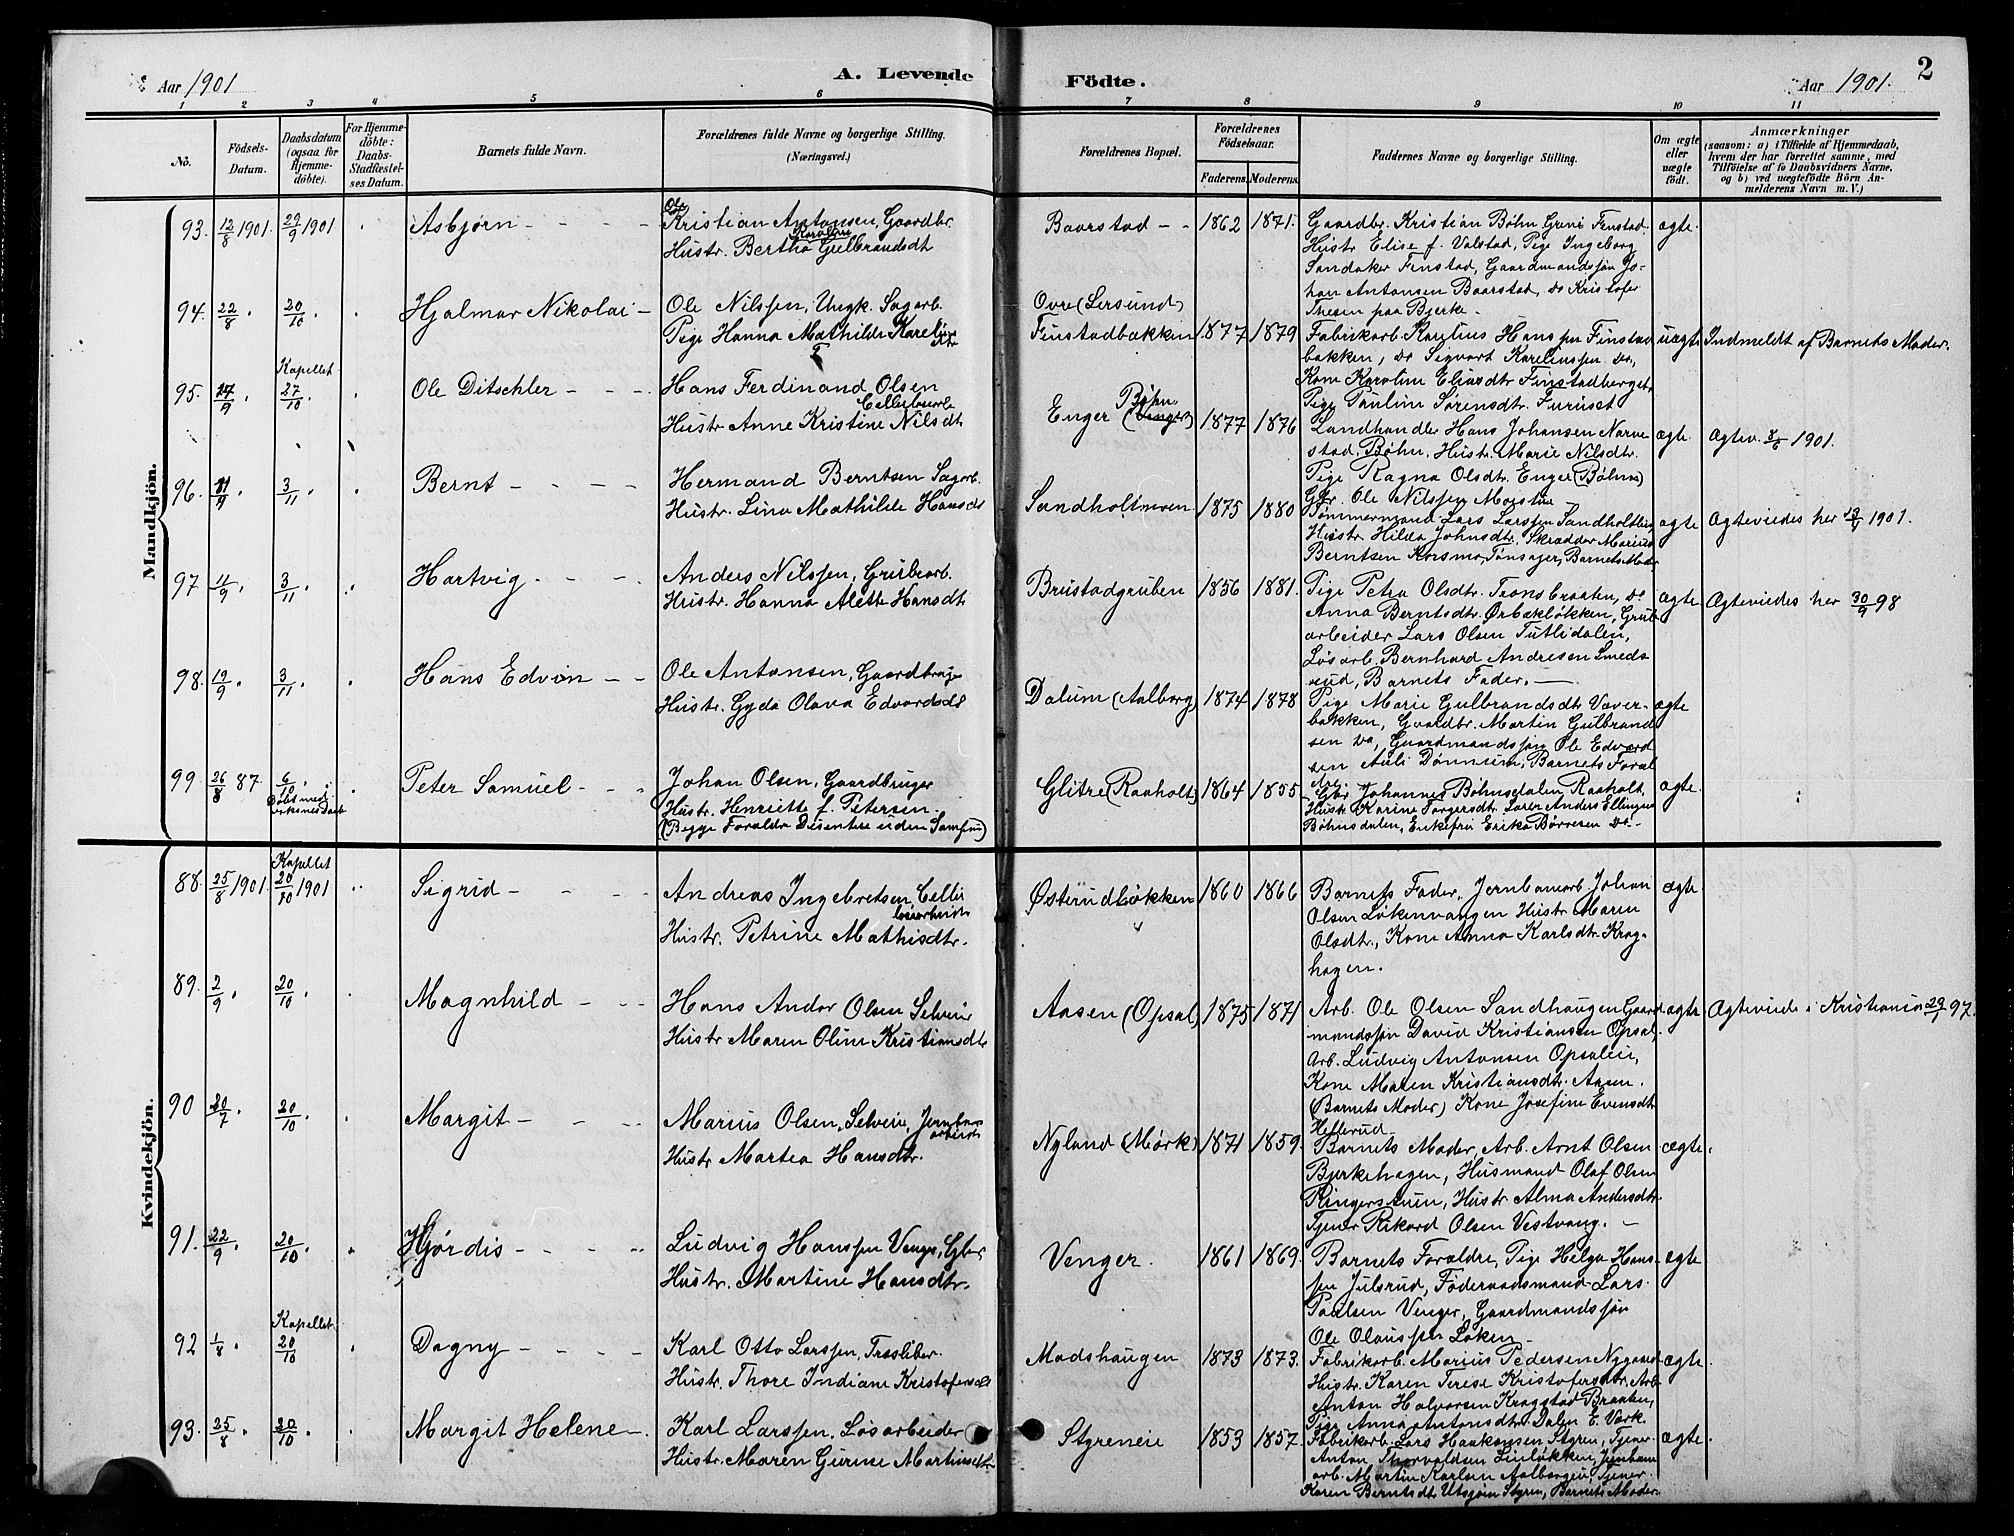 Aar 1901
A. Levende
Fødte.
Aar 1901.
2
1 2 3 4 5 6 7 8 9 10 11
No.
Födsels-
Datum.
Daabsdatum
(ogsaa for
Hjemme-
döbte).
For Hjemme-
döbte:
Daabs-
Stadfæstel-
ses Datum.
Barnets fulde Navn.
Forældrenes fulde Navne og borgerlige Stilling.
(Næringsvei.)
Forældrenes Bopæl.
Forældrenes
Födselsaar.
Faderens. Moderens.
Faddernes Navne og borgerlige Stilling.
Om ægte
eller
uægte
födt.
Anmærkninger
(saasom: a) i Tilfælde af Hjemmedaab,
hvem der har forrettet samme, med
Tilföielse af to Daabsvidners Navne,
og b) ved uægtefödte Börn An-
melderens Navn m. V.)
Mandkjön.
93. 12/8 1901. 29/9 1901 Asbjørn
Ole
Kristian Antonsen, Gaardbr.
Karoline
Hustr. Bertha Gulbrandsdt
Baarstad 1862 1871.
Gaardbr. Kristian Bøhn Greni Finstad.
Hustr Elise f. Valstad, Pige Ingeborg
Sandaker Finstad, Gaardmandssøn Jo-
han Antonsen Baarstad, Do Kristofer
Thesen paa Bjerke.
ægte.
94. 22/8 20/10 Hjalmar Nikolai
Ole Nilssen, Ungk. Sagarb.
Pige Hanna Mathilde Kareliusdtr
Ovre (Lersund)
Finstadbakken 1877 1879
Fabrikarb. Karelius Hanssen Finstad
bakken, Do Sigvart Karelinssen Do,
Kone Karoline Eliasdtr Finstadberget
Pige Pauline Sørensdtr. Furuset
uægte Indmeldt af Barnets Moder.
Kapellet
95. 17/9 27/10 Ole Ditschler
Hans Ferdinand Olsen
Cellulosearb
Hustr Anne Kristine Nilsdt
Bøhn
Enger (Venger) 1877 1876
Landhandler Hans Johansen Narve
stad, Bøhn, Hustr. Marie Nilsdtr.
Pige Ragna Olsdtr. Enger (Bøhn)
Gbr. Ole Nilssen Morstue
ægte Ægtev. 1901.
96. 11/9 3/11 Bernt
Hermand Berntsen Sagarb.
Hustr. Lina Mathilde Hansdt
Sandholtmoen 1875 1880
Tømmermand Lars Larssen Sandholtbraaten
Hustr Hilda Johnsdtr. Skrædder Marius
Berntsen Kosmo, Tønsager, Barnets Moder
ægte Ægteviedes her 1901.
97 11/9 3/11 Hartvig
Anders Nilssen, Grubearb.
Hustr. Hanna Alette Hansdt
Brustadgruben 1856 1881.
Pige Petra Olsdtr. Tronsbraaten, Do
Anna Berntsdtr. Ørbækløkken, Grub
arbeider Lars Olsen Tutlidalen,
Løsarb. Bernhard Andresen Smeds
rud, Barnets Fader.
ægte Ægteviedes her 30/9 98
98. 19/9 3/11 Hans Edvin
Ole Antonsen, Gaardbruger
Hustr. Gyda Olava Edvardsdt
Dalum (Aalborg) 1874 1878
Pige Marie Gulbrandsdtr Vaver-
bakken, Gaardbr. Martin Gulbrand
sen Do, Gaardmandssøn Ole Edvard
sen Auli Dønnum, Barnets Foræl
dre
ægte
99 26/8 87 6/10 Peter Samuel
Døbt med
voksnes Daab
Johan Olsen, Gaardbruger
Hustr. Henriette f. Petersen.
(Begge Forældre Dissentere uden Samfund)
Glitre (Raaholt) 1864 1855
Gbr Johannes Bøhnsdalen, Raaholt,
Hustr. Karine Torgersdtr. Lærer Anders Ellingsen
Bøhnsdalen, Enkefru Erika Børresen Do
ægte.
Kvindekjön.
Kapellet
88. 25/8 1901. 20/10 1901 Sigrid
Andreas Ingebretsen, Cellu
losearbeider
Hustr. Petrine Mathisdtr.
Østerudløkken 1860 1866
Barnets Fader, Jernbanearb Johan
Olsen Løkenvangen Hustr Maren
Olsdtr., Kone Anna Karlsdtr. Krag-
hagen.
ægte
89. 2/9 20/10 Magnhild
Hans Andor Olsen Selveier
Hustr Maren Oline Kristiansdtr
Aasen (Opsal) 1875 1871
Arb. Ole Olsen Sandhaugen Gaard
mandssøn David Kristiansen Opsal,
Arb. Ludvig Antonsen Opsaleie,
Kone Maren Kristiansdtr. Aasen.
(Barnets Moder) Kone Josefine Evensdtr
Hellerud
ægte Ægteviede i Kristiania 97.
90 20/7 20/10 Margit
Marius Olsen, Selveier, Jernbane
arbeider
Hustr Martea Hansdtr.
Nyland (Mørk) 1871 1859.
Barnets Moder, Arb. Arnt Olsen
Bjerkehagen, Husmand Olaf Olsen
Ringerstuen, Hustr Alma Andersdtr.
Tjener Rikard Olsen Vestvang.
ægte.
91. 22/9 20/10 Hjørdis
Ludvig Hanssen Venger, Gbr.
Hustr. Martine Hansdtr.
Venger. 1861 1869.
Barnets Forældre, Pige Helga Hans-
sen Julsrud, Føderaadsmand Lars
Paulsen Venger, Gaardmandssøn
Ole Olaussen Løken
ægte
Kapellet
92 1/8 20/10 Dagny
Karl Otto Larssen, Træsliber.
Hustr. Thore Indiane Kristofersdt
Madshaugen 1873 1873.
Fabrikarb. Marius Pedersen Nygaard
Hustr. Karen Terese Kristofersdtr. Arb
Anton Halvorsen Kragstad Braaten,
Pige Anna Antonsdtr. Dalen E. Værk
ægte.
93. 25/8 20/10 Margit Helene
Karl Larssen, Løsarbeider
Hustr. Maren Gurine Martinsdtr
Styreneie 1853 1857.
Fabrikarb. Lars Haakonsen Styren, Tjener
Anton Thorvaldsen Linløkken, Jernbane
arb. Martin Karlsen Aalborgeie, Tjener
Karen Berntsdtr Utsjøen Styren, Barnets Moder.
ægte.